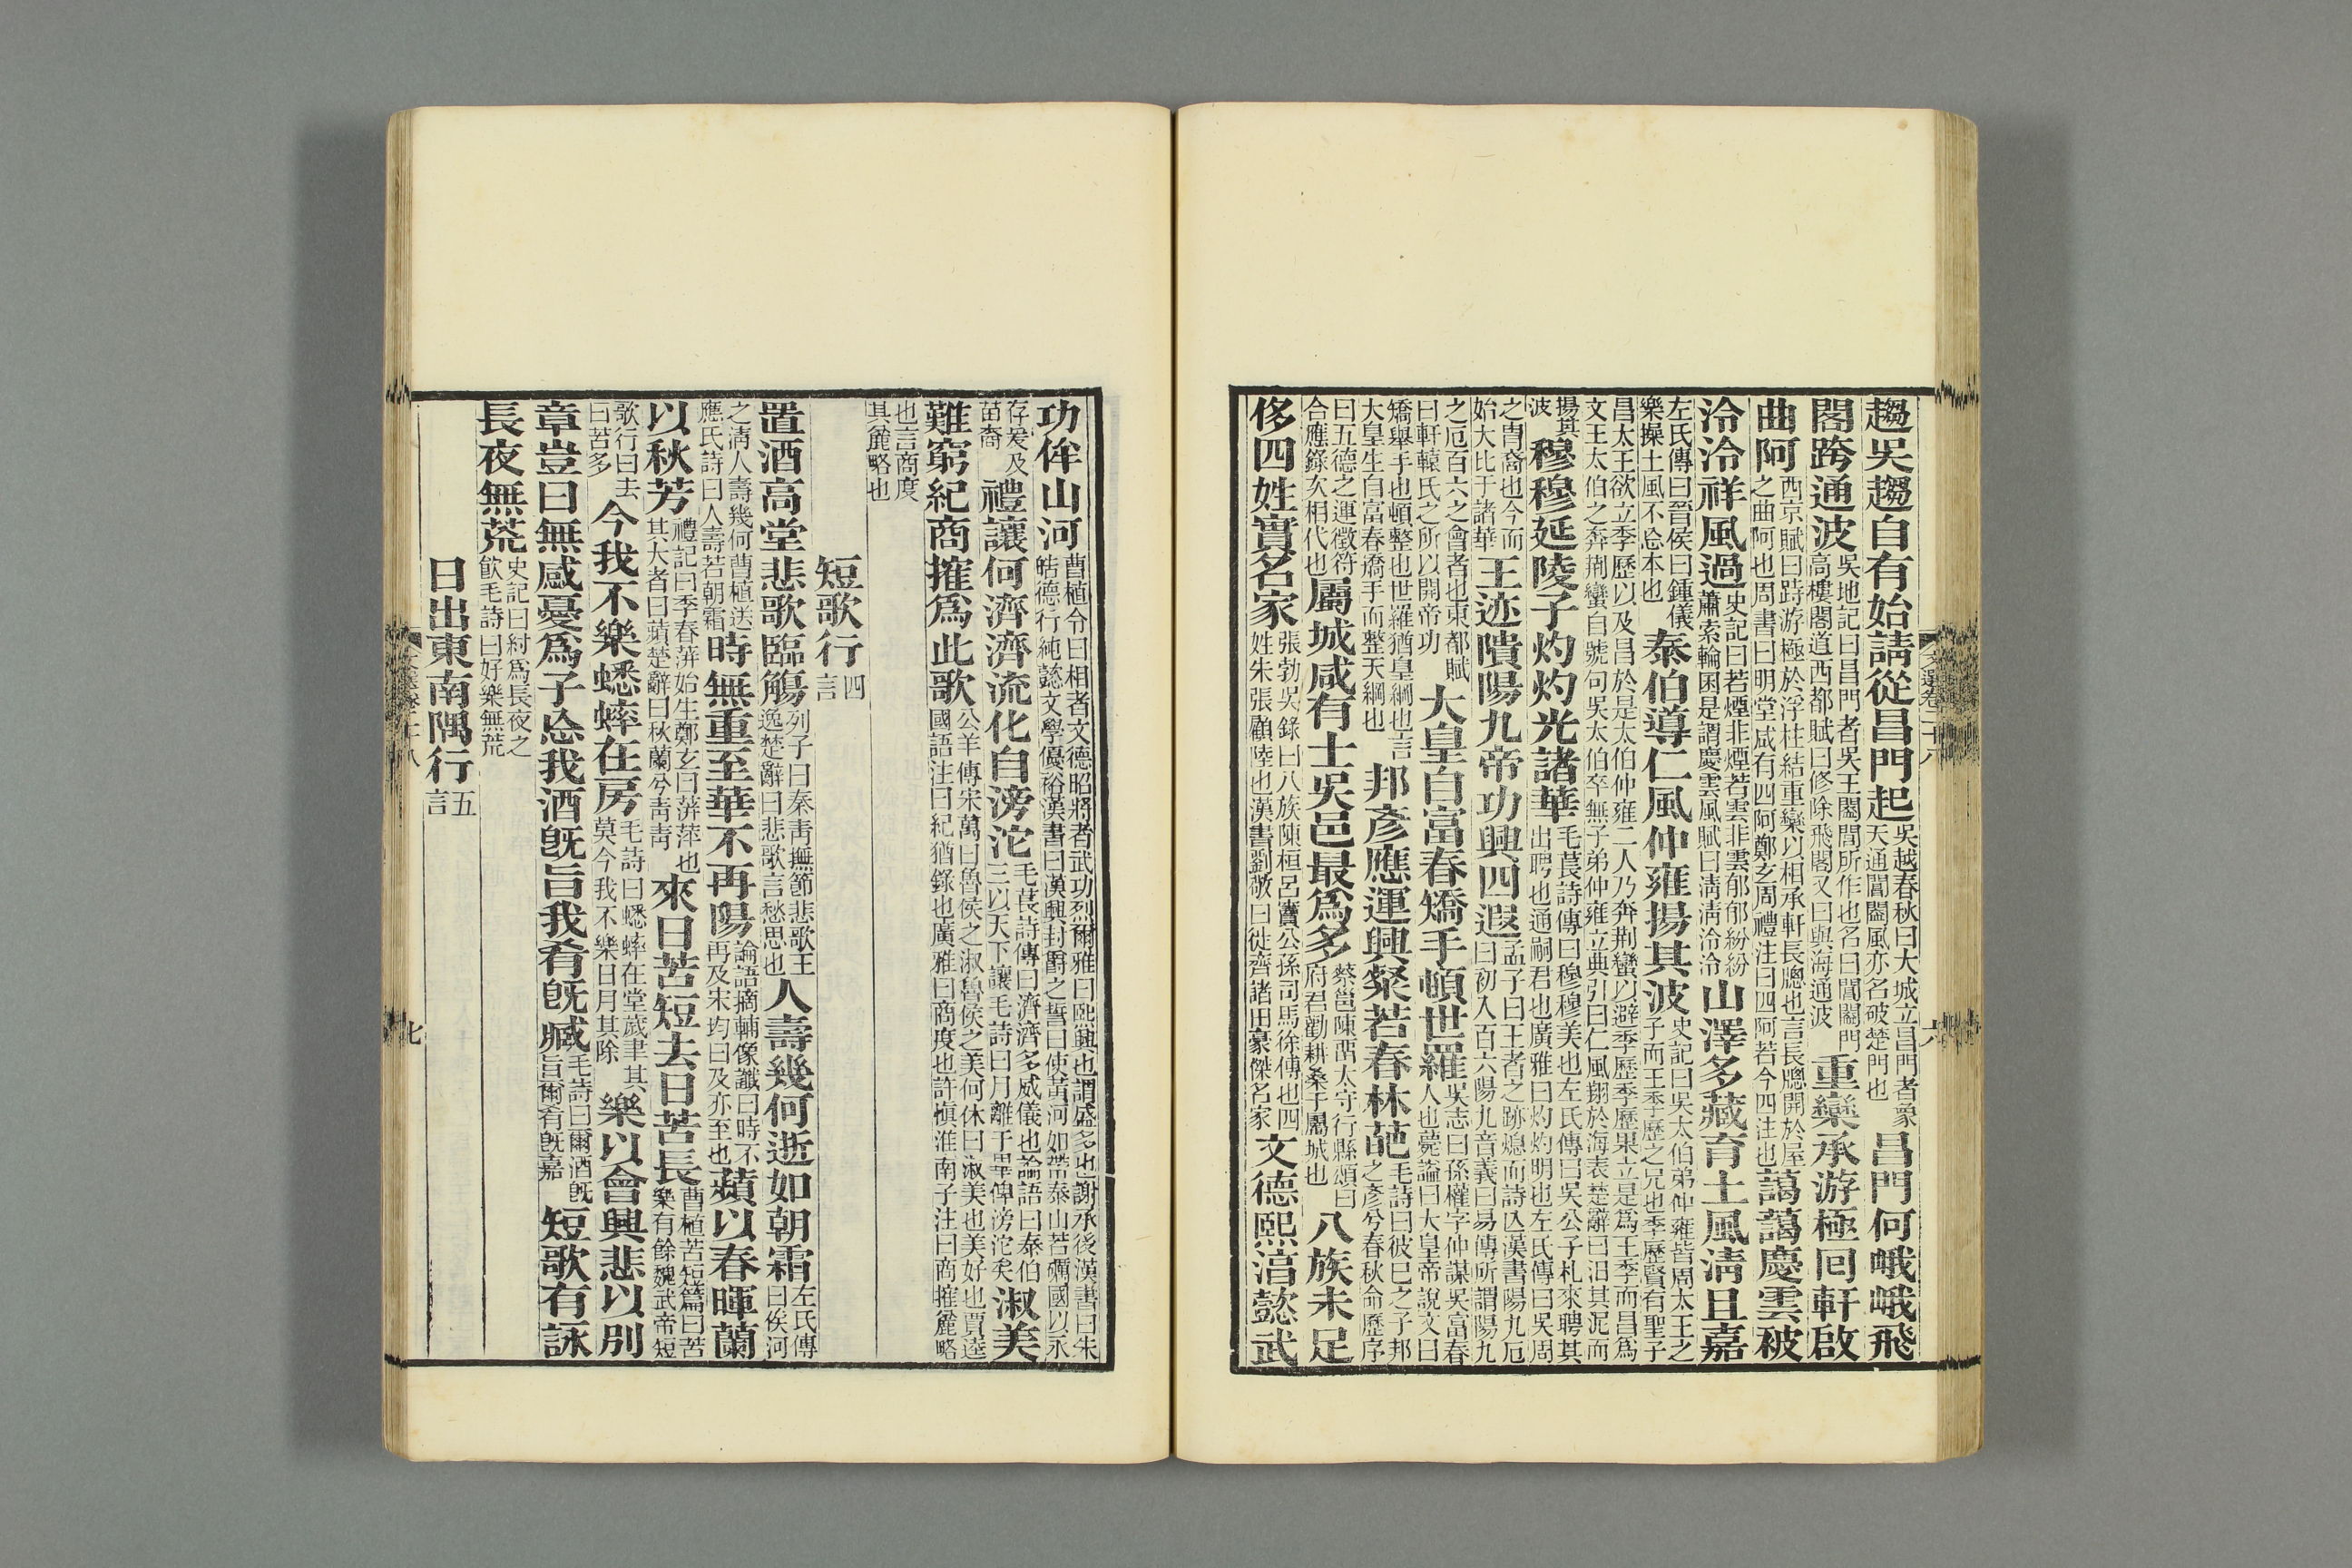 趨吳趨自有始請從昌門起吳越春秋曰大城立昌門者象天通閶闔風亦名破楚門也昌門何峨峨飛
閣跨通波吳地記曰昌門者吳王闔閭所作也名曰閶闔門高樓閣道西都賦曰修除飛閣又曰與海通波重欒承游極回軒啟
曲阿西京賦曰跱游極於浮柱結重欒以相承軒長牕也言長牕開於屋之曲阿也周書曰明堂咸有四阿鄭玄周禮注曰四阿若今四注也藹藹慶雲被
泠泠祥風過史記曰若煙非煙若雲非雲郁郁紛紛蕭索輪囷是謂慶雲風賦曰清清泠泠山澤多藏育土風清且嘉
左氏傳曰晉侯曰鍾儀樂操土風不忘本也泰伯導仁風仲雍揚其波史記曰吳太伯弟仲雍皆周太王之子而王季歷之兄也季歷賢有聖子
昌太王欲立季歷以及昌於是太伯仲雍二人乃奔荆蠻以避季歷季歷果立是爲王季而昌爲文王太伯之奔荆蠻自號句吳太伯卒無子弟仲雍立典引曰仁風翔於海表楚辭曰汩其泥而
揚其波穆穆延陵子灼灼光諸華毛萇詩傳曰穆穆美也左氏傳曰吳公子札來聘其出聘也通嗣君也廣雅曰灼灼明也左氏傳曰吳周
之胄裔也今而始大比于諸華王迹隤陽九帝功興四遐孟子曰王者之跡熄而詩亾漢書陽九厄曰初入百六陽九音義曰易傳所謂陽九
之厄百六之會者也東都賦曰軒轅氏之所以開帝功大皇自富春矯手頓世羅吳志曰孫權字仲謀吳富春人也薨謚曰大皇帝說文曰
矯舉手也頓整也世羅猶皇綱也言大皇生自富春矯手而整天綱也邦彥應運興粲若春林葩毛詩曰彼巳之子邦之彥兮春秋命歷序
曰五德之運徵符合應錄次相代也屬城咸有士吳邑最爲多蔡邕陳畱太守行縣頌曰府君勸耕桑于屬城也八族未足
侈四姓實名家張勃吳錄曰八族陳桓呂竇公孫司馬徐傅也四姓朱張顧陸也漢書劉敬曰徙齊諸田豪傑名家文德熙淳懿武
功侔山河曹植令曰相者文德昭將者武功烈爾雅曰熙興也謂盛多也謝承後漢書曰朱皓德行純懿文學優裕漢書曰漢興封爵之誓曰使黃河如帶泰山若礪國以永
存爰及苗裔禮讓何濟濟流化自滂沱毛萇詩傳曰濟濟多威儀也論語曰泰伯三以天下讓毛詩曰月離于畢俾滂沱矣淑美
難窮紀商搉爲此歌公羊傳宋萬曰魯侯之淑魯侯之美何休曰淑美也美好也賈逵國語注曰紀猶錄也廣雅曰商度也許愼淮南子注曰商搉麤略
也言商度其麤略也
短歌行四言
置酒高堂悲歌臨觴列子曰秦靑撫節悲歌王逸楚辭曰悲歌言愁思也人壽幾何逝如朝霜左氏傳曰俟河
之淸人壽幾何曹植送應氏詩曰人壽若朝霜時無重至華不再陽論語摘輔像讖曰時不再及宋均曰及亦至也蘋以春暉蘭
以秋芳禮記曰季春蓱始生鄭玄曰蓱萍也其大者曰蘋楚辭曰秋蘭兮靑靑來日苦短去日苦長曹植苦短篇曰苦樂有餘魏武帝短
歌行曰去日苦多今我不樂蟋蟀在房毛詩曰蟋蟀在堂歲聿其莫今我不樂日月其除樂以會興悲以別
章豈曰無感憂爲子忘我酒旣旨我肴旣臧毛詩曰爾酒旣旨爾肴旣嘉短歌有詠
長夜無荒史記曰紂爲長夜之飲毛詩曰好樂無荒
日出東南隅行五言